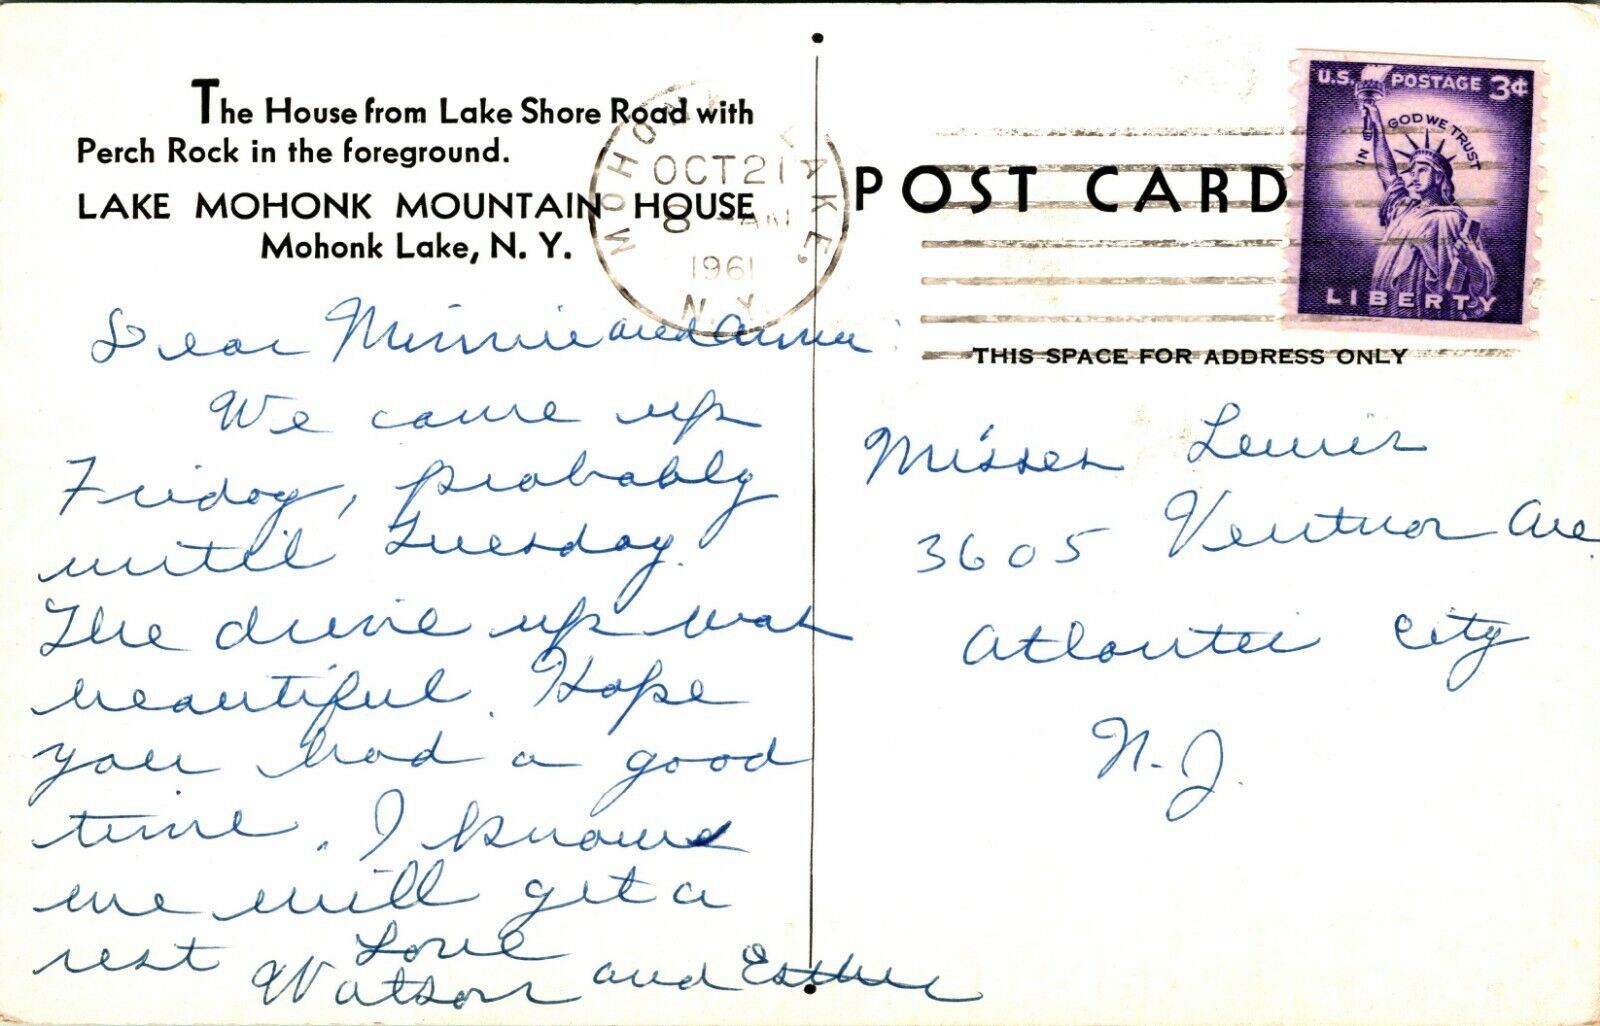 The House from Lake Shore Road with
Perch Rock in the foreground.
LAKE MOHONK MOUNTAIN HOUSE
Mohonk Lake, N. Y.
MOHONK LAKE,
OCT 21
8 - AM
1961
N.Y.
POST CARD
U.S. POSTAGE 3¢
IN GOD WE TRUST
LIBERTY
THIS SPACE FOR ADDRESS ONLY
Dear Minnie and Anna:
We came up
Friday, probably
until Tuesday.
The drive up was
beautiful. Hope
you had a good
time. I know
we will get a
rest Love
Watson and Esther
Misses Lewis
3605 Ventnor Ave.
Atlantic City
N. J.